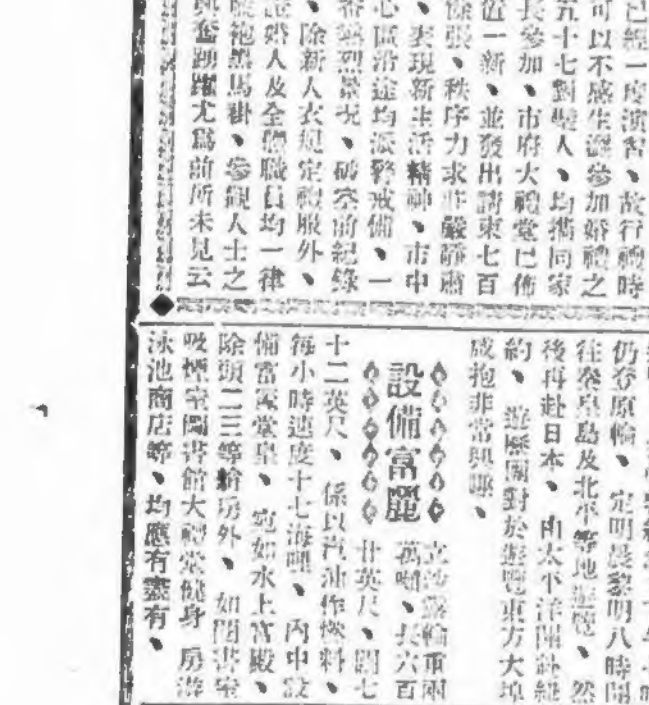 已經一度演習、故行禮時
可以不感生澀參加婚禮之
五十七對璧人、均攜同家
長參加、市府大禮堂已佈
置一新、並發出請柬七百
餘張、秩序力求莊嚴靜肅
、表現新生活精神、市中
心區沿途均派警戒備、一
番熱烈景況、破空前紀錄
、除新人衣規定禮服外、
證婚人及全體職員均一律
藍袍黑馬褂、參觀人士之
興奮踴躍尤爲前所未見云
仍登原輪、定明晨黎明八時開
往秦皇島及北平等地遊覽、然
後再赴日本、由太平洋開赴紐
約、遊歷團對於遊覽東方大埠
咸抱非常興趣、
設備富麗
立沙露輪重兩
萬噸、長六百
廿英尺、闊七
十二英尺、係以汽油作燃料、
每小時速度十七海哩、內中設
備富麗堂皇、宛如水上宮殿、
除頭二三等艙房外、如閱書室
吸煙室圖書館大禮堂健身房游
泳池商店等、均應有盡有、